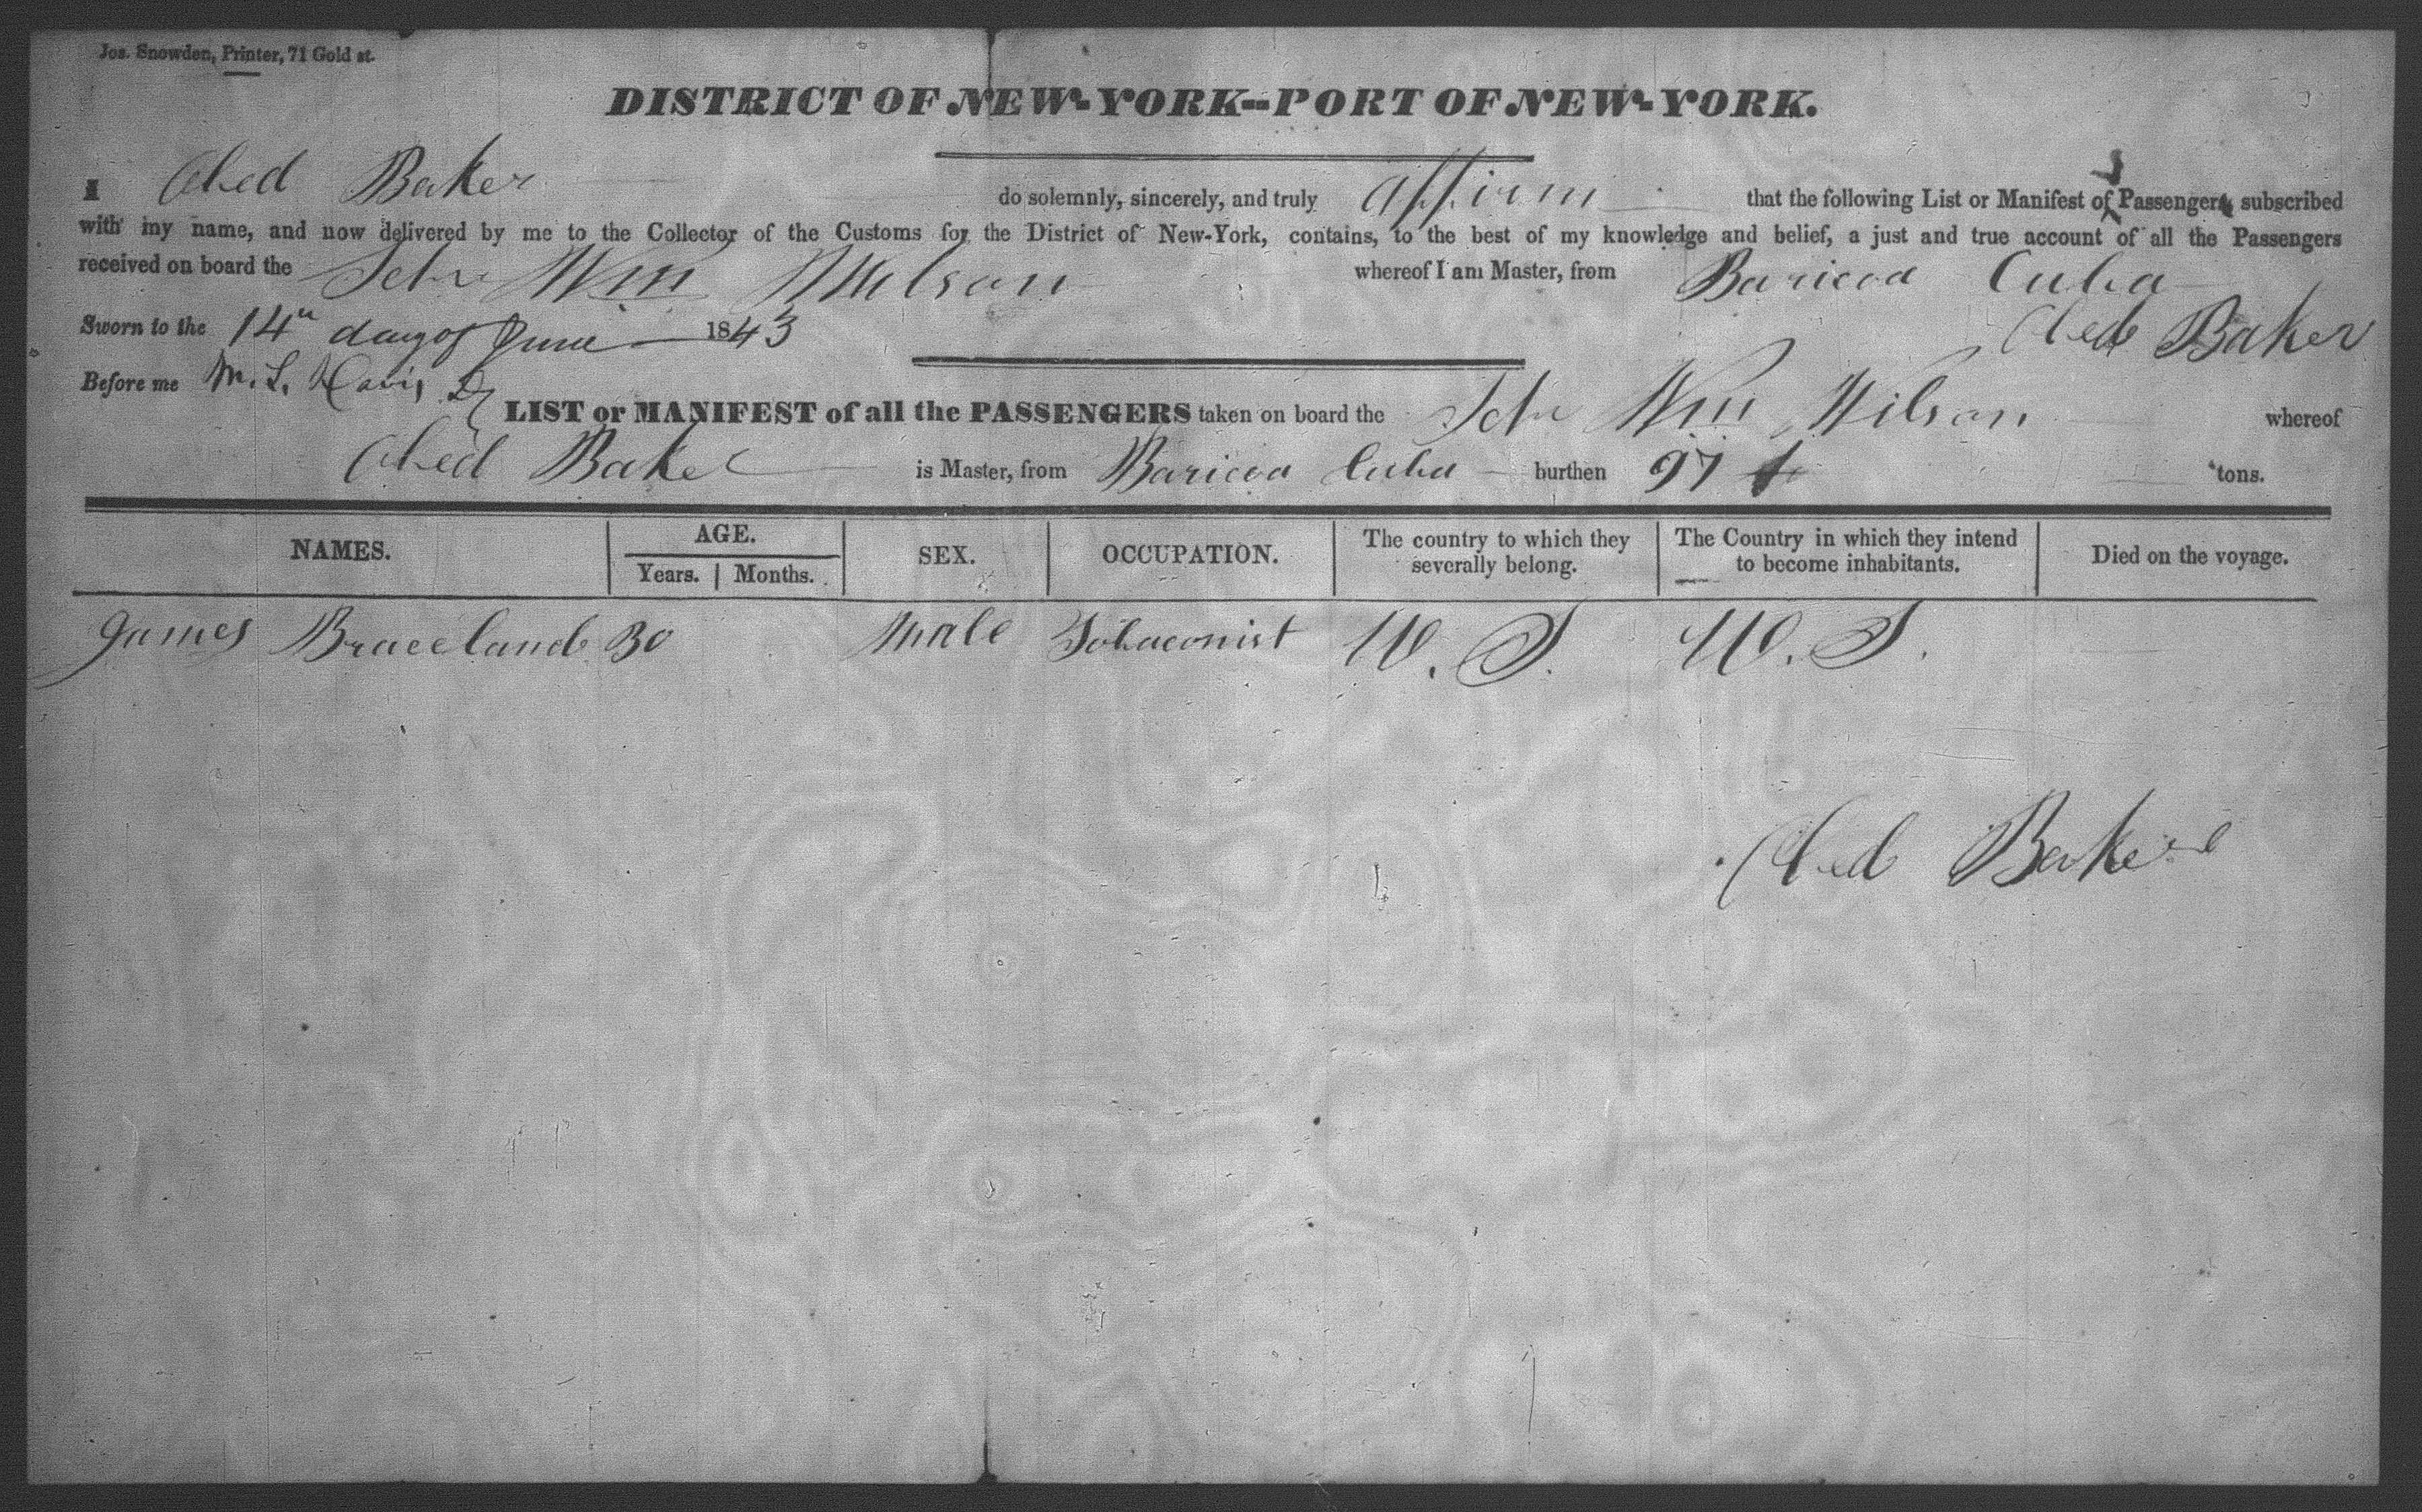 Jos. Snowden, Printer, 71 Gold st.
DISTRICT OF NEW-YORK--PORT OF NEW-YORK.
I Obed Baker do solemnly, sincerely, and truly affirm that the following List or Manifest of Passengers subscribed
with my name, and now delivered by me to the Collector of the Customs for the District of New-York, contains, to the best of my knowledge and belief, a just and true account of all the Passengers
received on board the Schr Wm Wilson whereof I am Master, from Baricoa Cuba
Sworn to the 14th day of June 1843 Obed Baker
Before me M. L. Davis
LIST or MANIFEST of all the PASSENGERS taken on board the Schr Wm Wilson whereof
Obed Baker is Master, from Baricoa Cuba burthen 97 tons.
NAMES. AGE. SEX. OCCUPATION. The country to which they severally belong. The Country in which they intend to become inhabitants. Died on the voyage.
Years. Months.
James Braceland 30 Male Tobaconist U. S. U. S.
Obed Baker